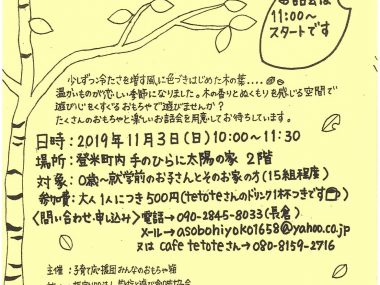 お話会は
11:00〜
スタートです
少しずつ冷たさを増す風に色づきはじめた木の葉....
温かいものが恋しい季節になりました。木の香りとぬくもりを感じる空間で
遊び心をくすぐるおもちゃで遊びませんか?
たくさんのおもちゃと楽しいお話会を用意してお待ちしています。
日時:2019年11月3日(日)10:00〜11:30
場所:登米町内 手のひらに太陽の家 2階
対象:0歳〜就学前のお子さんとそのお家の方(15組程度)
参加費:大人1人につき500円(teteteさんのドリンク1杯つきです)
〈問い合わせ・申し込み〉電話→090-2845-8033(長倉)
メール→asobohiyoko1658@yahoo.co.jp
又は cafe teteteさん→080-8159-2716
主催:子育て応援団みんなのおもちゃ箱